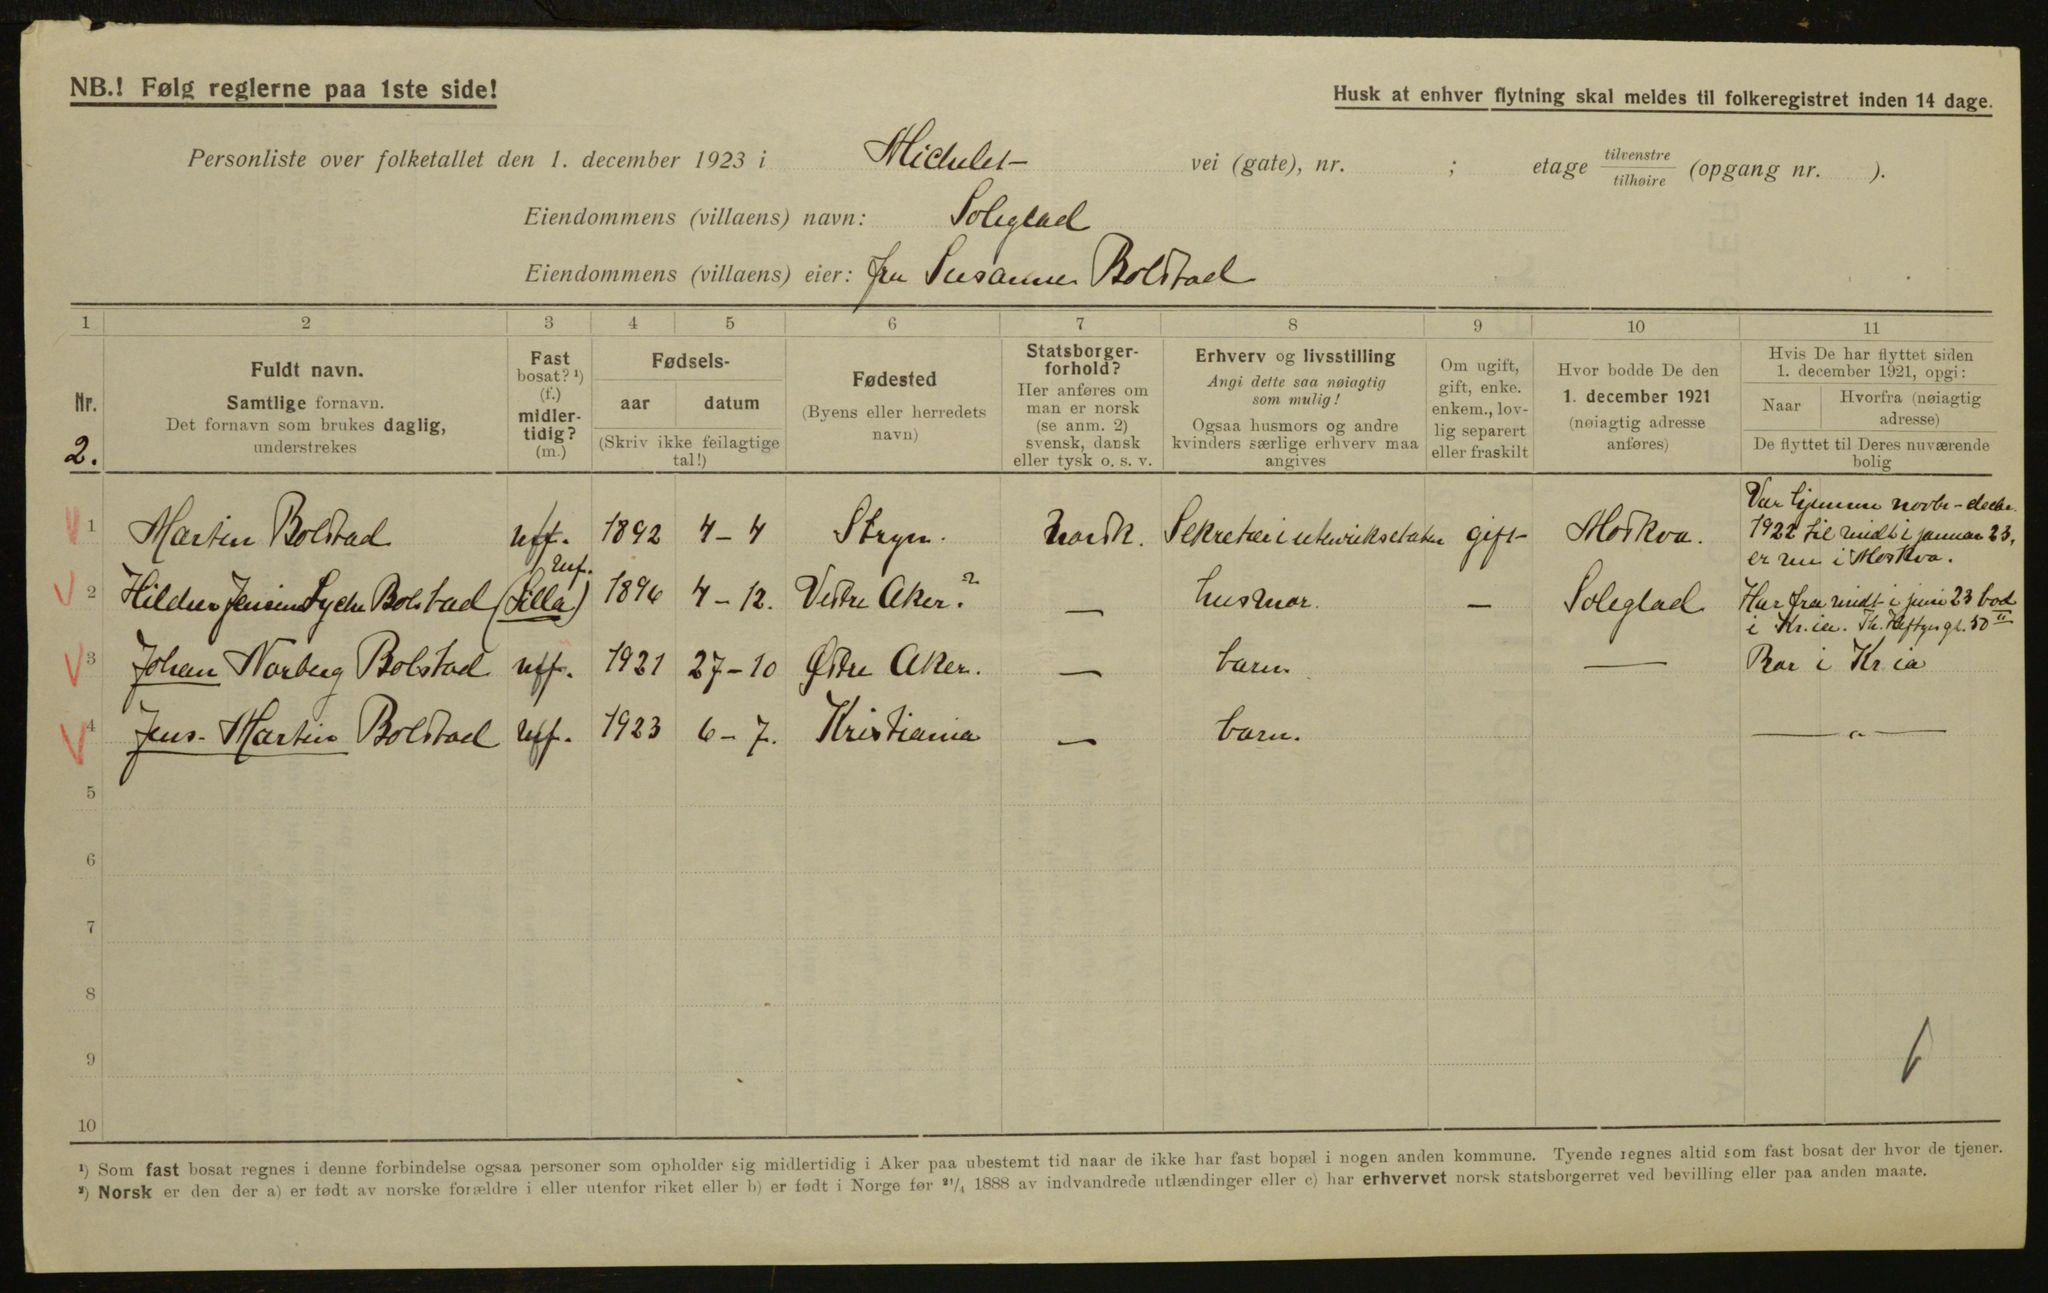 NB.! Følg reglerne paa 1ste side!
Husk at enhver flytning skal meldes til folkeregistret inden 14 dage.
Personliste over folketallet den 1. december 1923 i Michelet- vei (gate), nr. ; etage tilvenstre/tilhøire (opgang nr. ).
Eiendommens (villaens) navn: Soleglad
Eiendommens (villaens) eier: fru Susanne Bolstad
1 2 3 4 5 6 7 8 9 10 11
Nr.
2.
Fuldt navn.
Samtlige fornavn.
Det fornavn som brukes daglig,
understrekes
Fast
bosat? ¹)
(f.)
midler-
tidig?
(m.)
Fødsels-
aar datum
(Skriv ikke feilagtige
tal!)
Fødested
(Byens eller herredets
navn)
Statsborger-
forhold?
Her anføres om
man er norsk
(se anm. 2)
svensk, dansk
eller tysk o. s. v.
Erhverv og livsstilling
Angi dette saa nøiagtig
som mulig!
Ogsaa husmors og andre
kvinders særlige erhverv maa
angives
Om ugift,
gift, enke.
enkem., lov-
lig separert
eller fraskilt
Hvor bodde De den
1. december 1921
(nøiagtig adresse
anføres)
Hvis De har flyttet siden
1. december 1921, opgi:
Naar Hvorfra (nøiagtig
adresse)
De flyttet til Deres nuværende
bolig
1 Martin Bolstad 1892 4-4 Stryn. norsk. Sekretær i utenriksetaten gift Moskva. Var hjemme novbr-decbr.
1922 til midt i januar 23,
er nu i Moskva.
2 Jensen Bolstad (Lilla) 1896 4-12. Vestre Aker. ? — husmor. — Soleglad Har fra midt i juni 23 bod
i Kr.ia. Th. Heftyes gt. 50 II
3 Johan Norberg Bolstad 1921 27-10 Østre Aker. — barn. — Bor i Kr.ia
4 Jens-Martin Bolstad 1923 6-7. Kristiania — barn. — " —
5
6
7
8
9
10
¹) Som fast bosat regnes i denne forbindelse ogsaa personer som opholder sig midlertidig i Aker paa ubestemt tid naar de ikke har fast bopæl i nogen anden kommune. Tyende regnes altid som fast bosat der hvor de tjener.
²) Norsk er den der a) er født av norske forældre i eller utenfor riket eller b) er født i Norge før ²¹/₄ 1888 av indvandrede utlændinger eller c) har erhvervet norsk statsborgerret ved bevilling eller paa anden maate.